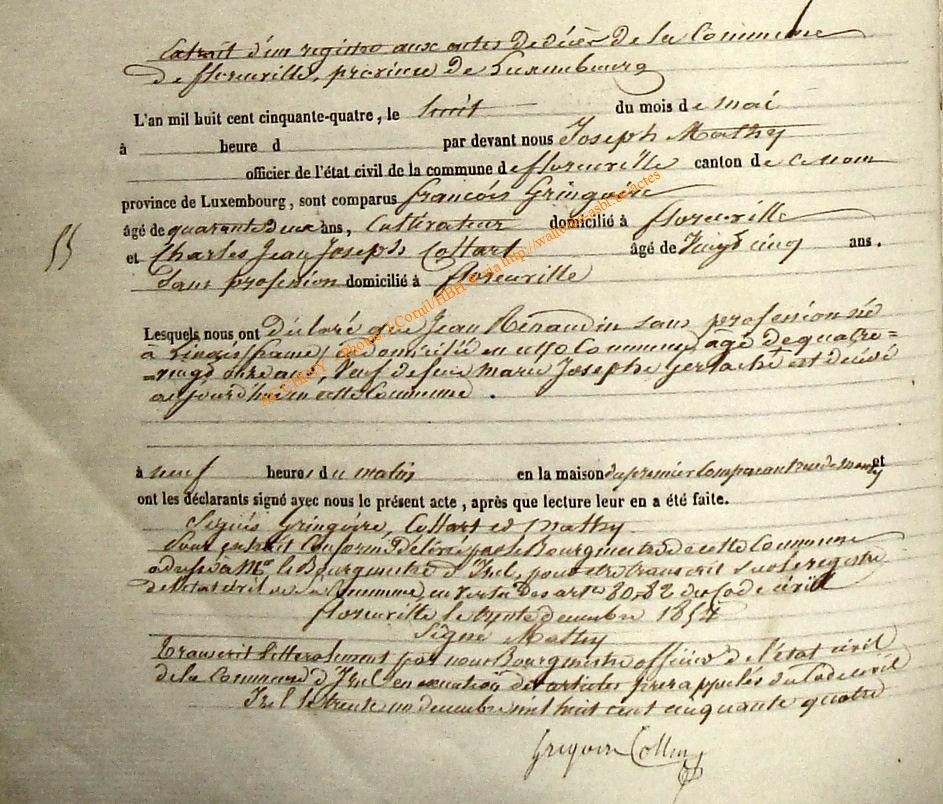 Extrait d'un registre aux actes de décès de la Commune
de florenville, province de Luxembourg
L'an mil huit cent cinquante-quatre, le huit du mois de mai
à heure d par devant nous Joseph Mathy
officier de l'état civil de la commune de florenville canton de ce nom
province de Luxembourg, sont comparus françois Gringoire
âgé de quarante deux ans, Cultivateur domicilié à florenville
55
et Charles Jean Joseph Collart âgé de vingt cinq ans.
sans profession domicilié à florenville
Lesquels nous ont déclaré que Jean Renaudin sans profession né
à (france) et domicilié en cette Commune, âgé de quatre=
=vingt onze ans, Veuf de feue marie Josephe est décédé
aujourd'hui en cette Commune.
à neuf heures du matin en la maison du premier Comparant et
ont les déclarants signé avec nous le présent acte, après que lecture leur en a été faite.
Signés Gringoire, Collart et Mathy
Pour extrait Conforme délivré par le Bourgmestre de cette Commune
adressé à Mr le Bourgmestre d'Izel, pour être transcrit sur le registre
de l'état civil de sa Commune, en vertu des artes 80, 82 du Code civil
florenville le trente decembre 1854
Signé Mathy
Transcrit litteralement par nous Bourgmestre officier de l'état civil
de la Commune d'Izel en execution des articles prerappelés du Code civil
Izel le trente un decembre mil huit cent cinquante quatre
Photos J.Cornil/HBH © via http://wallonia.asbl.be/actes